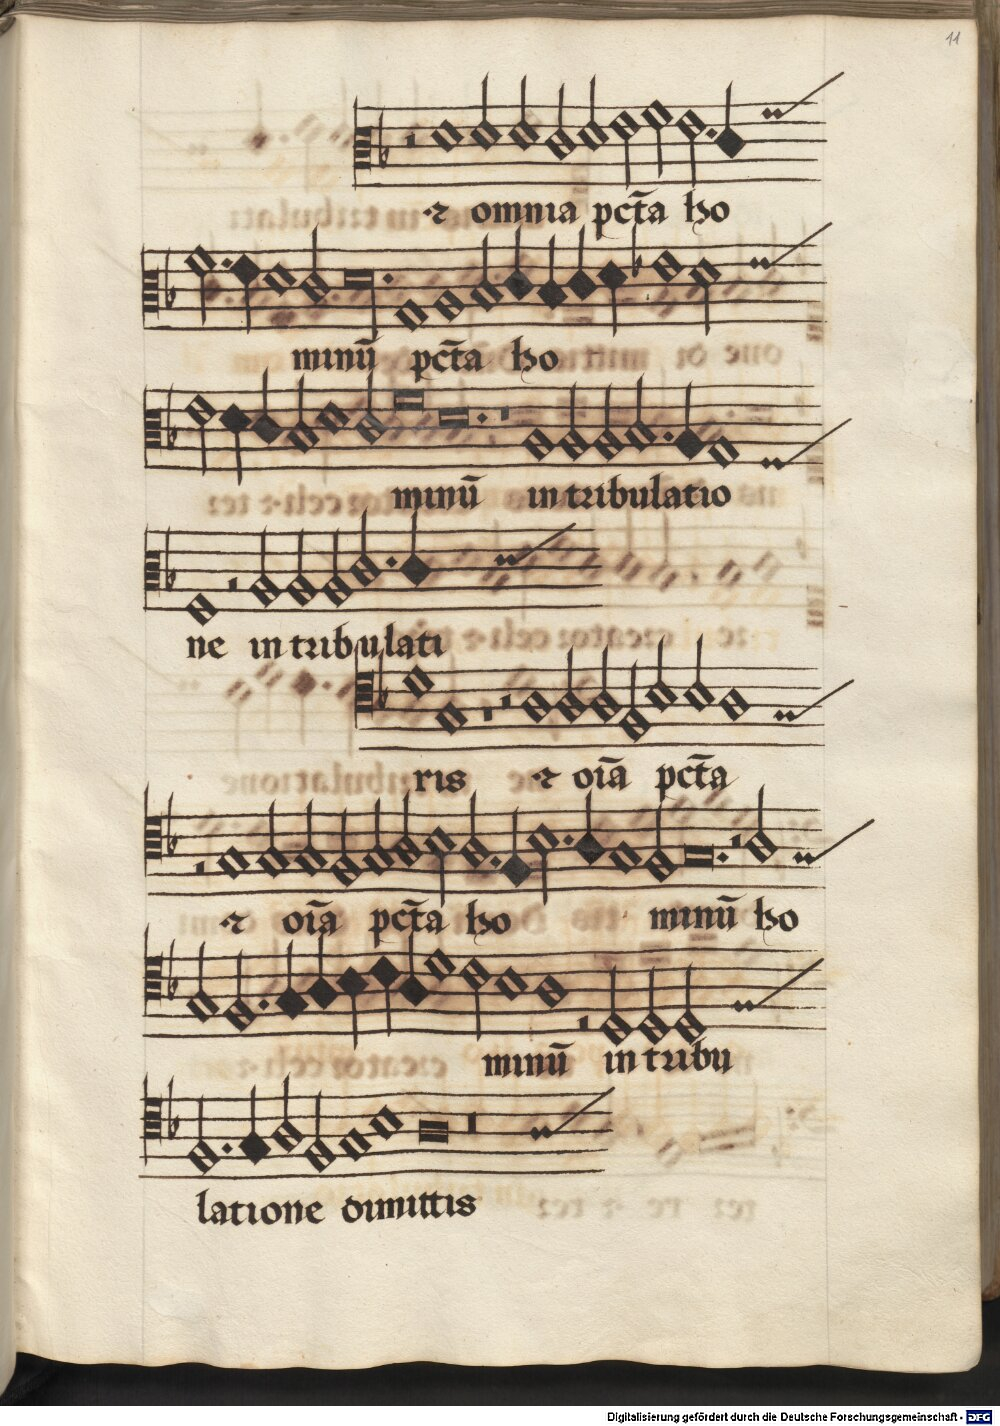 11
⁊ omnia pct̄a ho
minū pct̄a ho
minū in tribulatio
ne in tribulati
ris ⁊ oīa pct̄a
⁊ oīa pct̄a ho minū ho
minū in tribu
latione dimittis
Digitalisierung gefördert durch die Deutsche Forschungsgemeinschaft - DFG